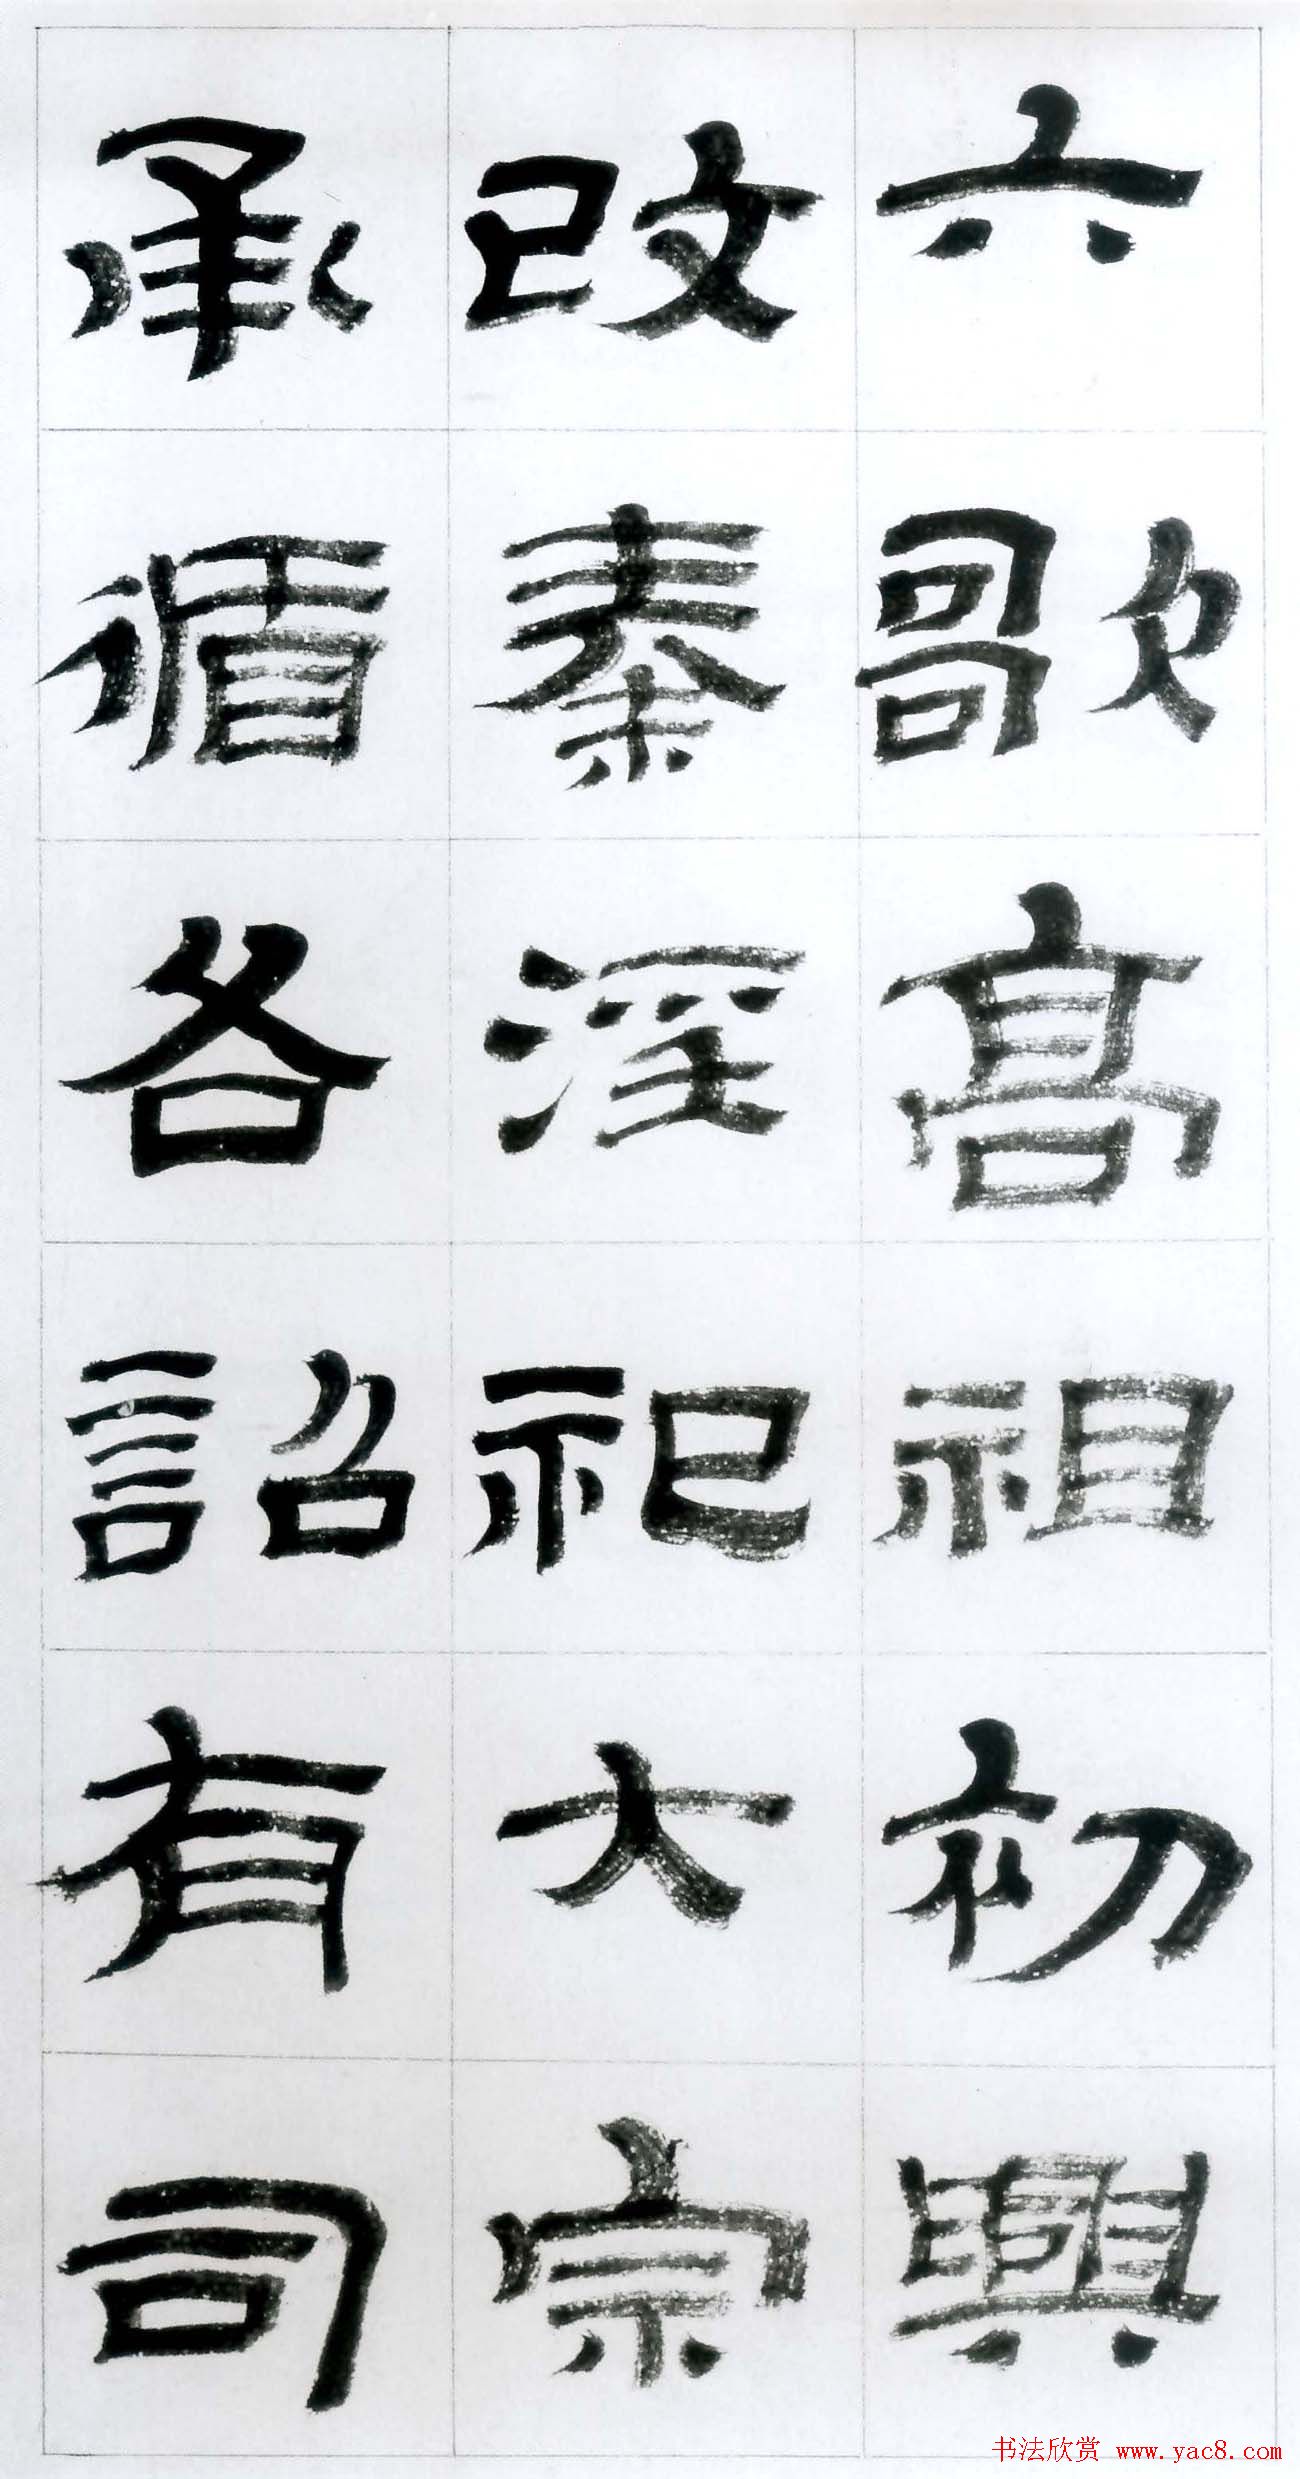 六歌高祖初興
改秦淫祀大宗
承循各詔有司
书法欣赏 www.yac8.com